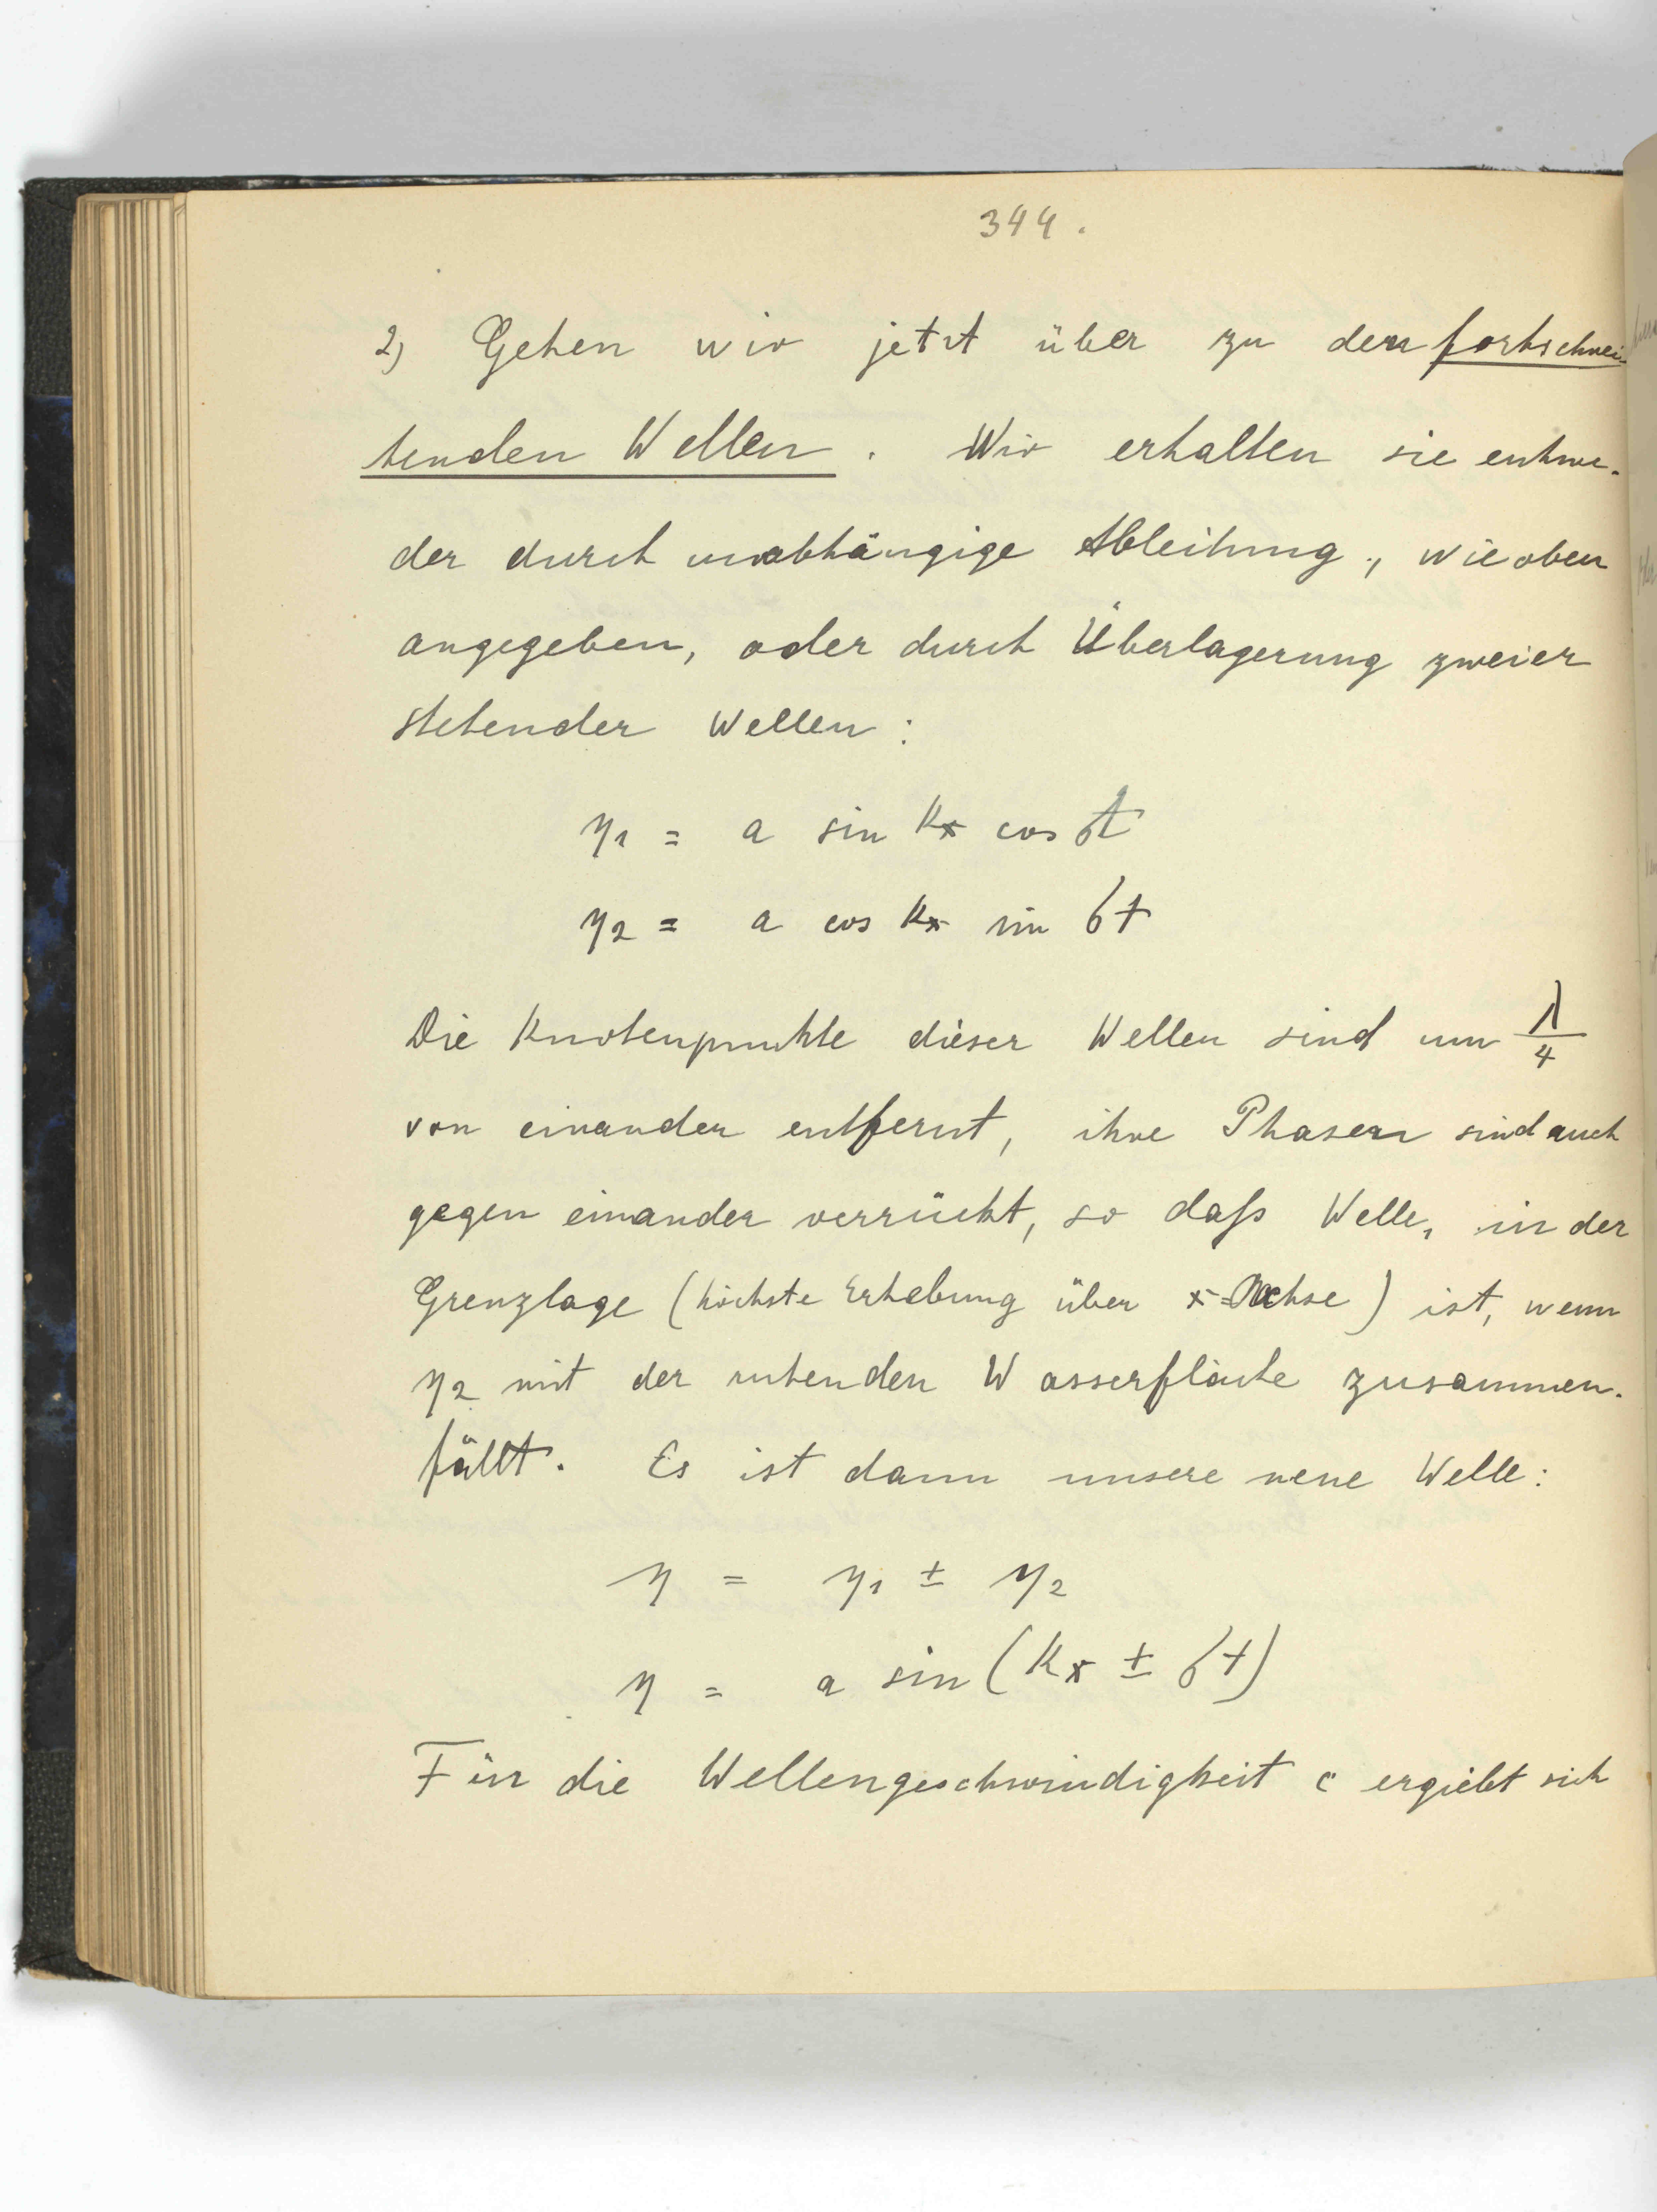 344.
2) Gehen wir jetzt über zu den fortschrei-
tenden Wellen. Wir erhalten sie entwe-
der durch unabhängige Ableitung, wie oben
angegeben, oder durch Überlagerung zweier
stehender Wellen:
η₁ = a sin kx cos σt
η₂ = a cos kx sin σt
Die Knotenpunkte dieser Wellen sind um λ/4
von einander entfernt, ihre Phasen sind auch
gegen einander verrückt, so daß Welle₁ in der
Grenzlage (höchste Erhebung über x-Achse) ist, wenn
η₂ mit der ruhenden Wasserfläche zusammen-
fällt. Es ist dann unsere neue Welle:
η = η₁ ± η₂
η = a sin (kx ± σt)
Für die Wellengeschwindigkeit c ergiebt sich